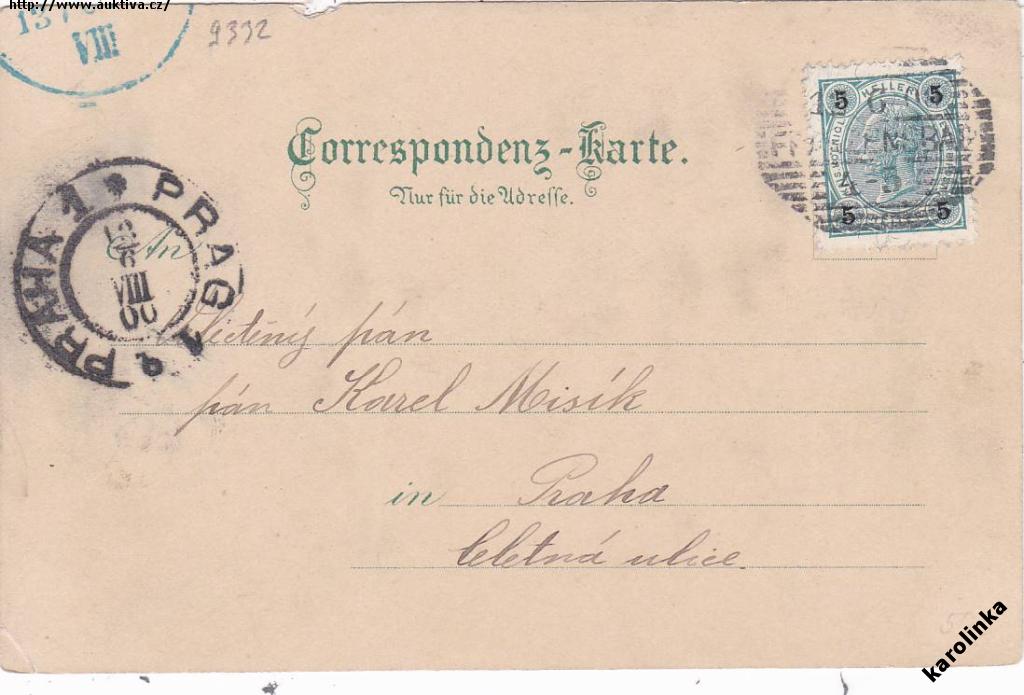 http://www.auktiva.cz/
VIII
9332
Correspondenz-Karte.
Nur für die Adresse.
5 HELLER 5
5 5
PRAHA 1 * PRAG 1
VIII
00
An
Slečtěný pán
pán Karel Misík
in Praha
Celetná ulice
karolinka